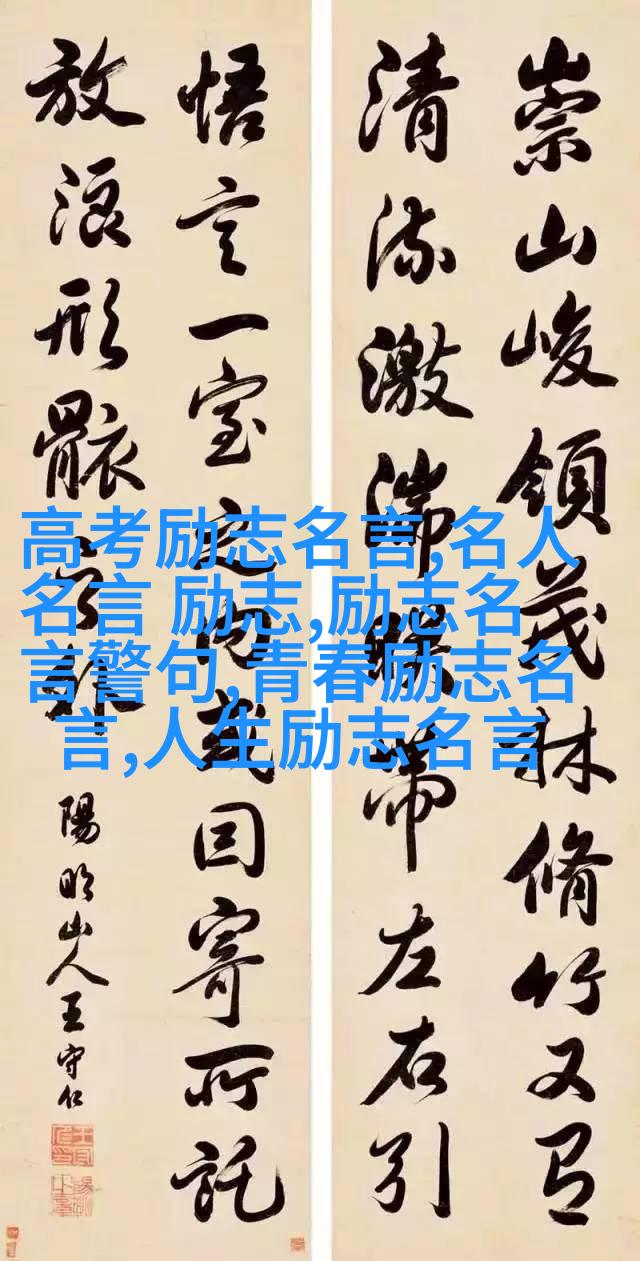 崇山峻領茂林脩竹又有
清流激湍暎帶左右引
悟言一室之内或因寄所託
放浪形骸之外
陽明山人王守仁
高考励志名言,名人
名言 励志,励志名
言警句,青春励志名
言,人生励志名言